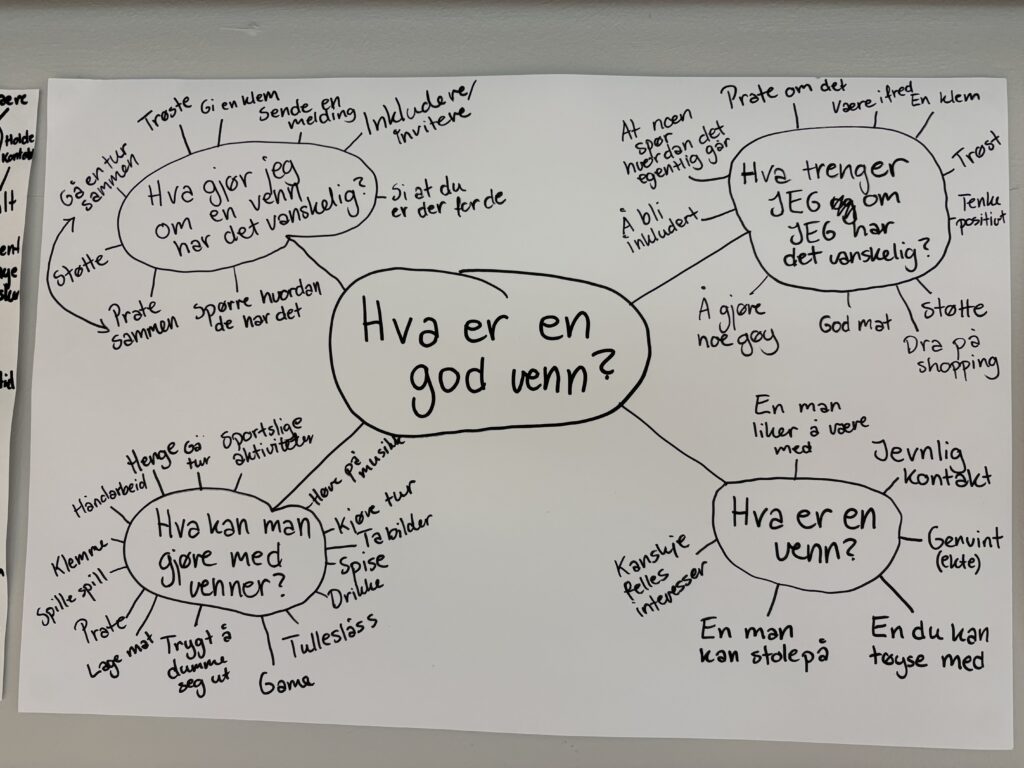 ære
Holde
Kontakt
lt
tid
Hva er en
god venn?
Hva gjør jeg
om en venn
har det vanskelig?
Gå en tur
sammen
Trøste
Gi en klem
Sende en
melding
Inkludere/
invitere
Si at du
er der for de
Spørre hvordan
de har det
Prate
sammen
Støtte
Hva trenger
JEG om
JEG har
det vanskelig?
At noen
spør
hvordan det
egentlig går
Prate om det
Være i fred
En klem
Trøst
Tenke
positivt
Støtte
Dra på
shopping
God mat
Å gjøre
noe gøy
Å bli
inkludert
Hva kan man
gjøre med
venner?
Håndarbeid
Henge
Gå
tur
Sportslige
aktiviteter
Høre på
musikk
Kjøre tur
Ta bilder
Spise
Drikke
Tullesláss
Game
Trygt å
dumme
seg ut
Lage mat
Prate
Spille spill
Klemme
Hva er en
venn?
En man
liker å være
med
Jevnlig
kontakt
Genuint
(ekte)
En du kan
tøyse med
En man
kan stole på
Kanskje
felles
interesser